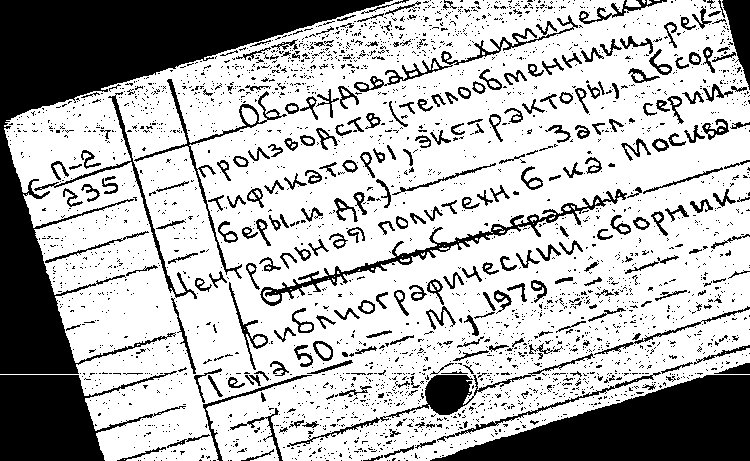 Сп-2
235
Оборудование химических
производств (теплообменники, рек-
тификаторы, экстракторы, абсор-
беры и др.). Загл. серии.
Центральная политехн. б-ка. Москва.
ОНТИ и библиографии.
Библиографический сборник
Тема 50. — М., 1979 —